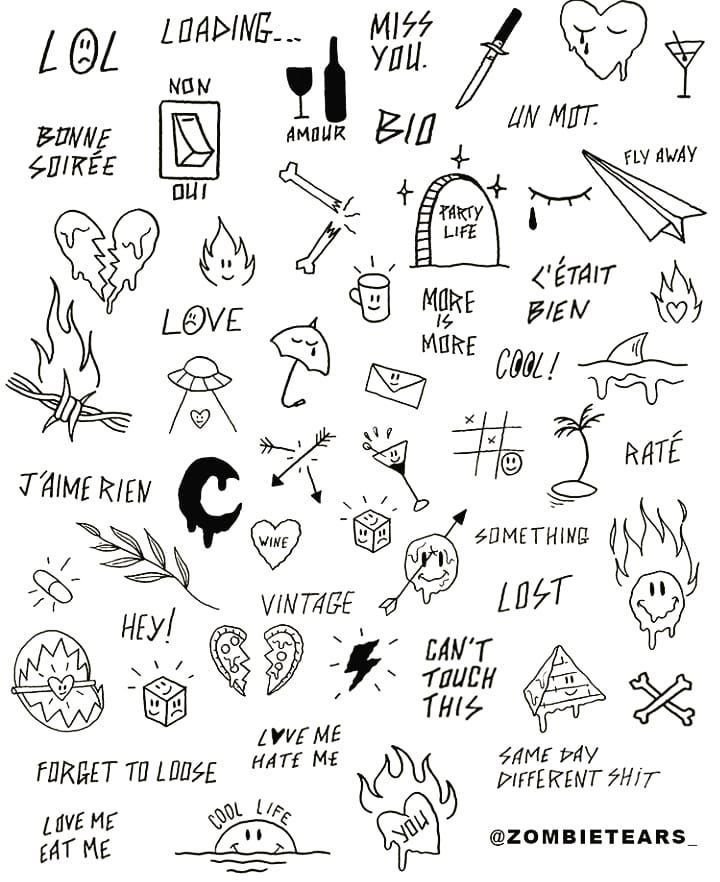 LOL
LOADING...
MISS
YOU.
NON
OUI
AMOUR
BIO
UN MOT.
BONNE
SOIRÉE
FLY AWAY
PARTY
LIFE
C'ÉTAIT
BIEN
LOVE
MORE
IS
MORE
COOL!
X
X
RATÉ
J'AIME RIEN
WINE
SOMETHING
LOST
VINTAGE
HEY!
CAN'T
TOUCH
THIS
LOVE ME
HATE ME
FORGET TO LOOSE
SAME DAY
DIFFERENT SHIT
LOVE ME
EAT ME
COOL LIFE
YOU
@ZOMBIETEARS_